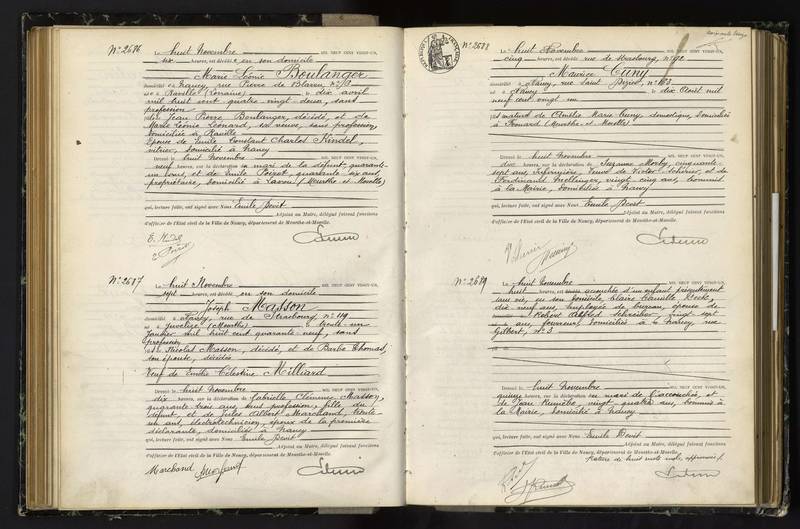 N° 2686
Le huit Novembre MIL NEUF CENT VINGT-UN,
six heures, est décédée en son domicile
Marie Léonie Boulanger
domiciliée à Nancy, rue Pierre de Blarru, n°
née à Raville (Lorraine) le dix avril
mil huit cent quatre vingt deux, sans
profession
de Jean Pierre Boulanger, décédé, et de
Marie Léonie Léonard, sa veuve, sans profession,
domiciliée à Raville
Epouse de Emile Constant Charles Kindel,
vitrier, domicilié à Nancy
Dressé le huit Novembre MIL NEUF CENT VINGT-UN,
neuf heures, sur la déclaration du mari de la défunte, quarante
un ans, et de Emile Poirot, quarante six ans,
propriétaire, domicilié à (Meurthe et Moselle)
qui, lecture faite, ont signé avec Nous Emile Devit
Adjoint au Maire, délégué faisant fonctions
d'officier de l'Etat civil de la Ville de Nancy, département de Meurthe-et-Moselle.
N° 2687
Le huit Novembre MIL NEUF CENT VINGT-UN,
sept heures, est décédé en son domicile
Joseph Masson
domicilié à Nancy, rue de Strasbourg, n° 119
né à Juvelize (Meurthe) le trente-un
Janvier mil huit cent quarante-neuf, sans
profession,
de Nicolas Masson, décédé, et de Barbe Thomas,
son épouse, décédée
Veuf de Emilie Célestine Milliard
Dressé le huit Novembre MIL NEUF CENT VINGT-UN,
dix heures, sur la déclaration de Gabrielle Clémence Masson,
quarante trois ans, sans profession, fille du
défunt et de Jules Albert Marchand, trente
un ans, électrotechnicien, époux de la première
déclarante, domiciliés à Nancy
qui, lecture faite, ont signé avec Nous Emile Devit
Adjoint au Maire, délégué faisant fonctions
d'officier de l'Etat civil de la Ville de Nancy, département de Meurthe-et-Moselle.
Marchand
N° 2688
Le huit Novembre MIL NEUF CENT VINGT-UN,
cinq heures, est décédé rue de Strasbourg, n°
Maurice Cuny
domicilié à Nancy, rue Saint
né à Nancy le dix Août mil
neuf cent vingt un
fils naturel de Cuny, domestique, domiciliée
à (Meurthe et Moselle)
Dressé le huit Novembre MIL NEUF CENT VINGT-UN,
dix heures, sur la déclaration de Suzanne cinquante
sept ans, infirmière, veuve de Victor et de
Ferdinand vingt cinq ans, commis
à la Mairie, domiciliés à Nancy
qui, lecture faite, ont signé avec Nous Emile Devit
Adjoint au Maire, délégué faisant fonctions
d'officier de l'Etat civil de la Ville de Nancy, département de Meurthe-et-Moselle.
N° 2689
Le huit Novembre MIL NEUF CENT VINGT-UN,
huit heures, est accouchée d'un enfant présentement
sans vie, en son domicile, Claire Camille
dix neuf ans, employée de bureau, épouse de
Robert Alfred Schreiber, vingt sept
ans, domiciliés à Nancy, rue
Gilbert, n° 3
Dressé le huit Novembre MIL NEUF CENT VINGT-UN,
quinze heures, sur la déclaration du mari de l'accouchée, et
de Jean vingt quatre ans, commis à
la Mairie, domicilié à Nancy
qui, lecture faite, ont signé avec Nous Emile Devit
Adjoint au Maire, délégué faisant fonctions
d'officier de l'Etat civil de la Ville de Nancy, département de Meurthe-et-Moselle.
Rature de huit mots nuls, approuvée /.